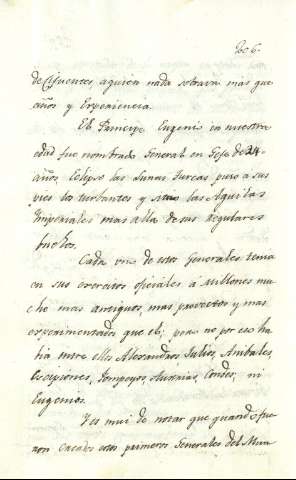 de Cifuentes, aquien nada sobrava mas que
años y Experiencia.
El Principe Eugenio en nuestra
edad fue nombrado General en Gefe de 24
años, Eclipso las Lunas Turcas puso a sus
pies los turbantes y las Aguilas
Imperiales mas alla de sus regulares
buelos.
Cada uno de estos Generales tenia
en sus exercitos oficiales á millones mu
cho mas antiguos, mas provectos y mas
experimentados que el; pero no por eso ha
bia entre ellos Alexandros Julios, Anibales,
Escipiones, Pompeyos, Condes, ni
Eugenios.
Y es mui de notar que quando fue
ron estos primeros Generales del Mun